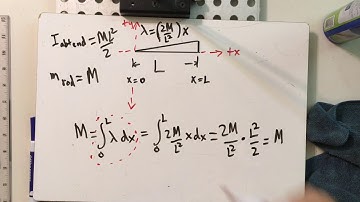 I about end = ML²/2
+y
λ = (2M/L²)x
+x
m rod = M
L
x=0
x=L
M = ∫₀ᴸ λ dx = ∫₀ᴸ 2M/L² x dx = 2M/L² · L²/2 = M